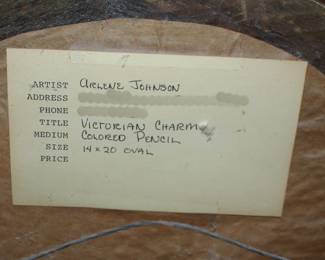 ARTIST Arlene Johnson
ADDRESS
PHONE
TITLE VICTORIAN CHARM
MEDIUM COLORED PENCIL
SIZE 14 x 20 OVAL
PRICE